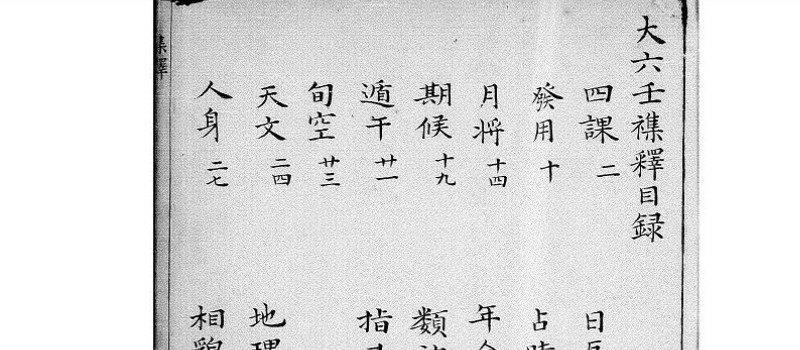 大六壬襍釋目録
四課 二 日
發用 十 占時
月将 十四 年
期候 十九 類
遁干 廿一 指
旬空 廿三
天文 二四 地理
人身 二七 相貌
釋